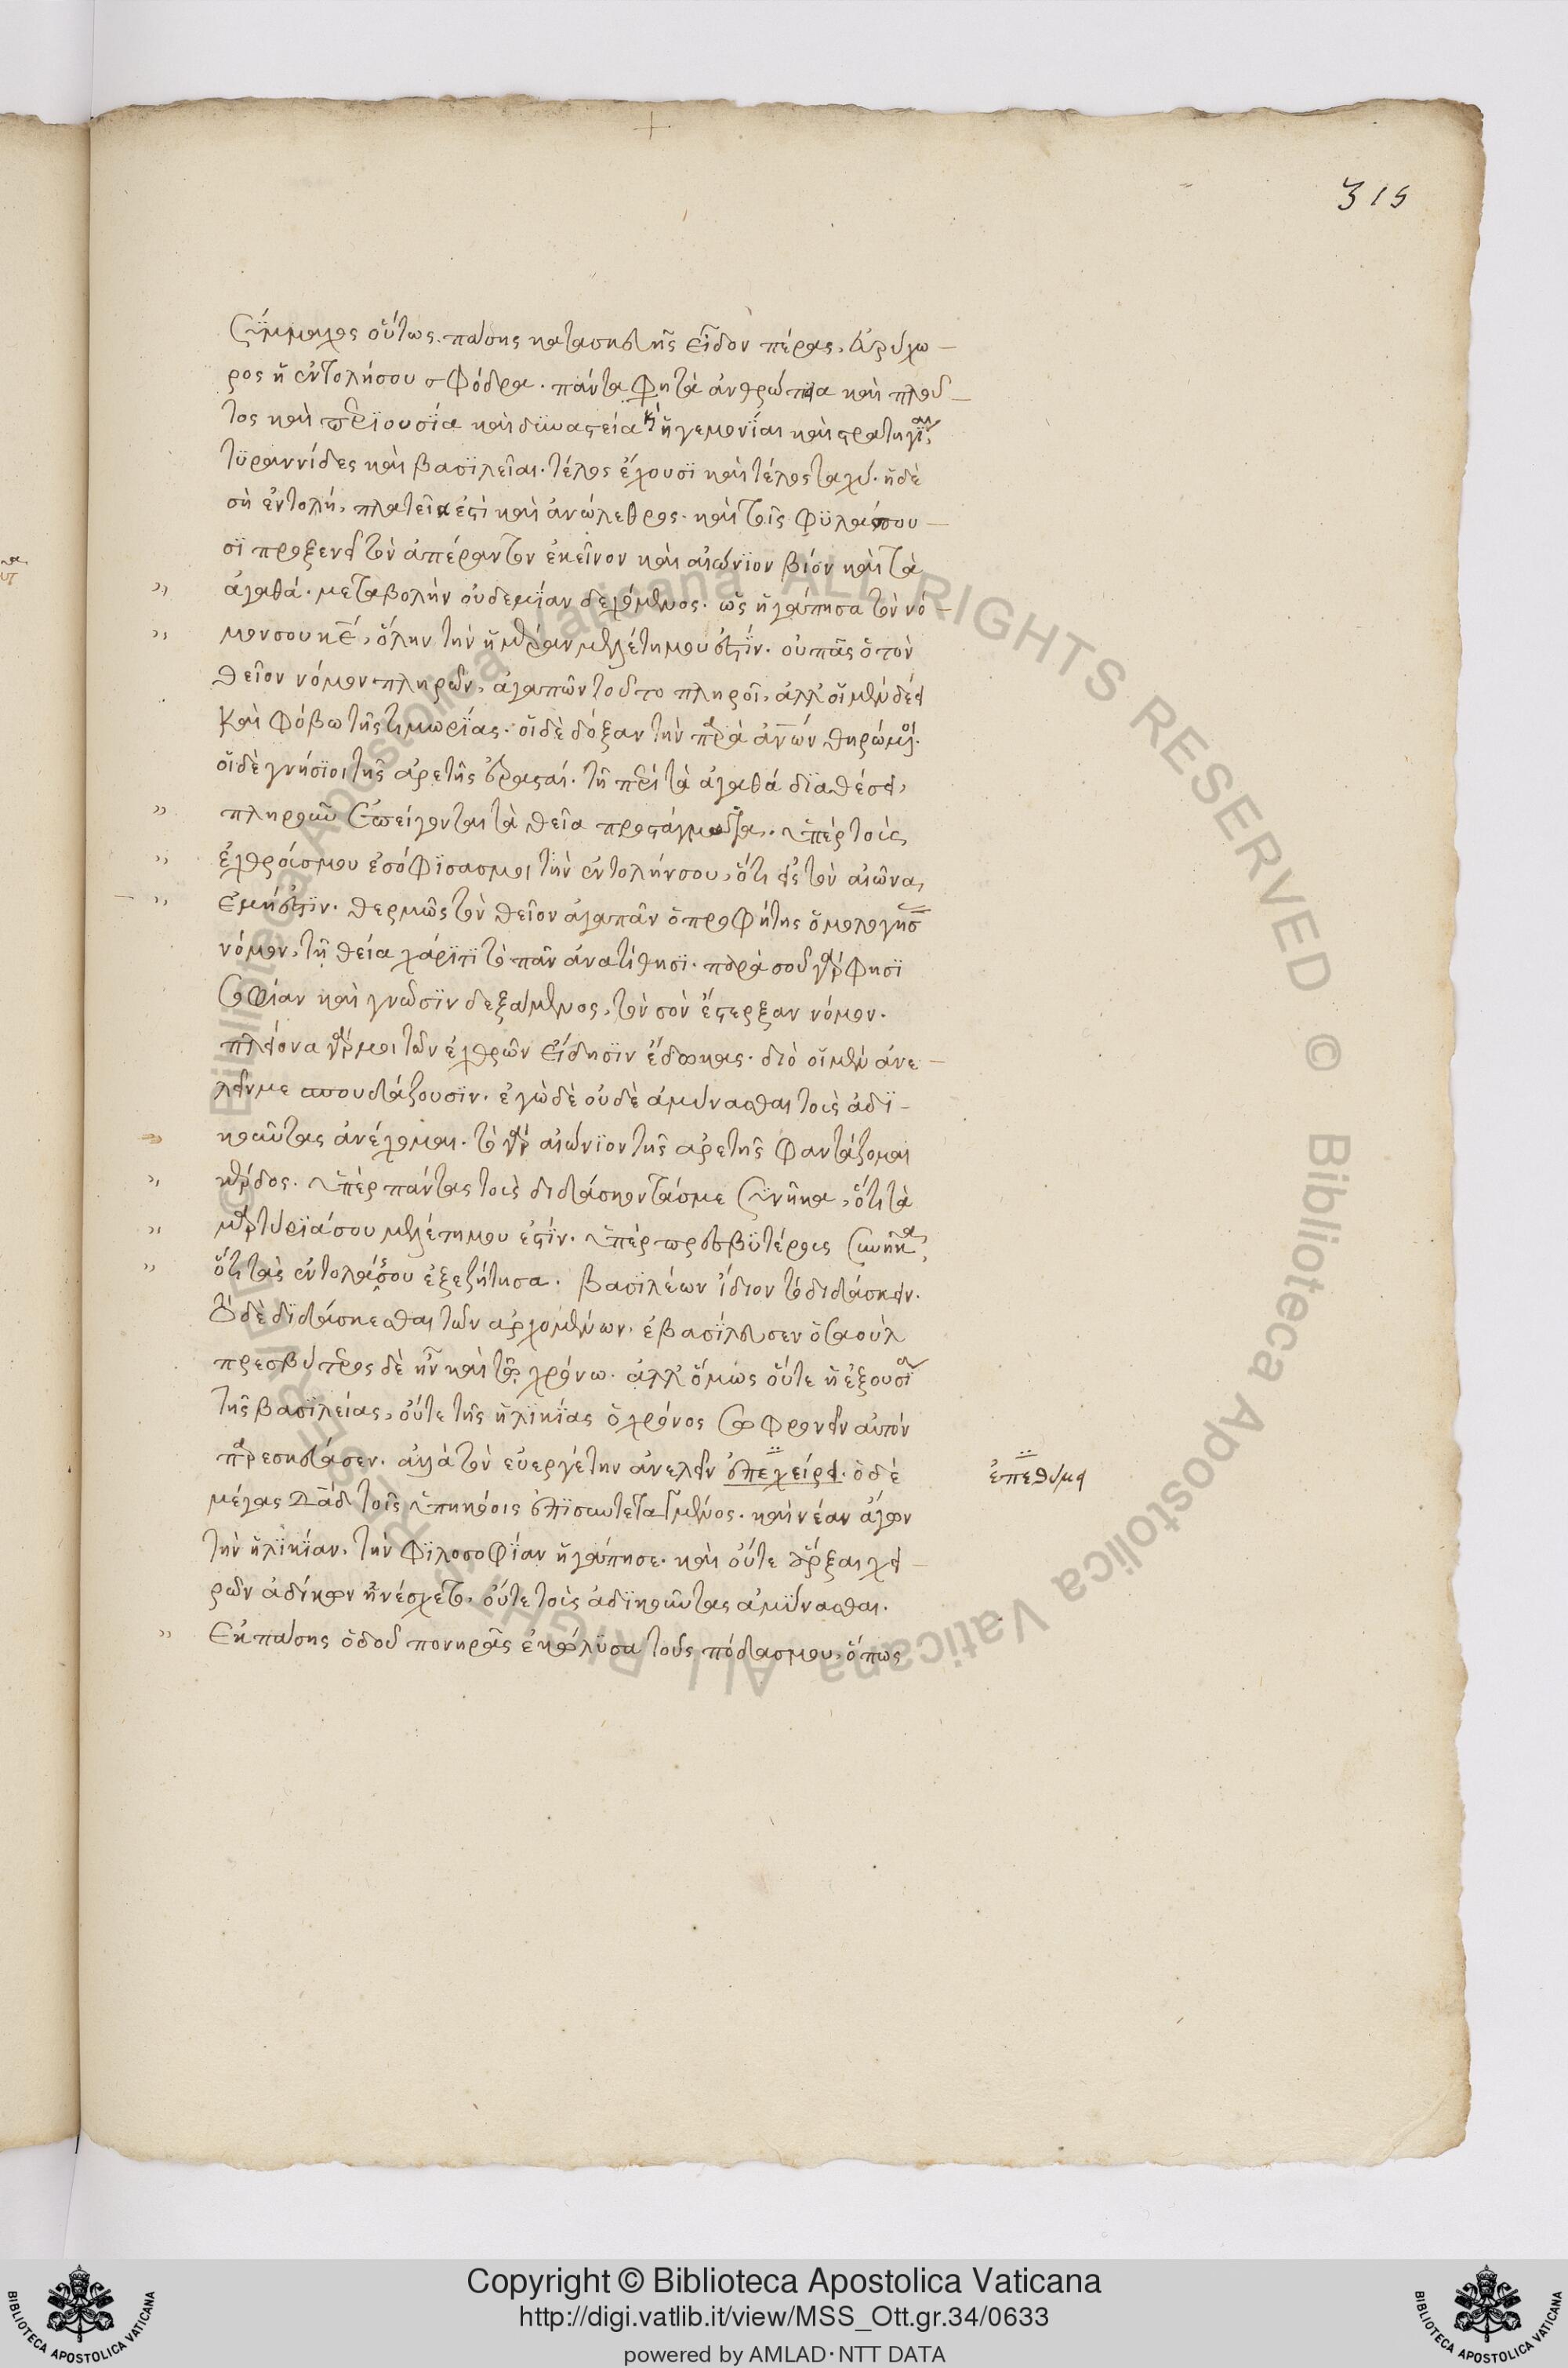 315
Σύμμαχος οὕτως. πάσης κατασκευῆς εἶδον πέρας, εὐρύχω
ρος ἡ ἐντολή σου σφόδρα. πάντα φη τὰ ἀνθρώπινα καὶ πλοῦ
τος καὶ περιουσία καὶ δυναστεία κ ἡγεμονίαι καὶ στρατηγίαι,
τυραννίδες καὶ βασιλεῖαι. τέλος ἔχουσι καὶ τέλος ταχύ. ἡ δὲ
σὴ ἐντολή, πλατεῖα ἐστὶ καὶ ἀνώλεθρος. καὶ τοῖς φυλάττου
σι προξενεῖ τὸν ἀπέραντον ἐκεῖνον καὶ αἰώνιον βίον καὶ τὰ
ἀγαθά. μεταβολὴν οὐδεμίαν δεχόμενος. ὡς ἠγάπησα τὸν νό
μον σου κε, ὅλην τὴν ἡμέραν μελέτη μου ἐστίν. οὐ πᾶς ὁ τὸν
θεῖον νόμον πληρῶν, ἀγαπῶν τοῦτο πληροῖ, ἀλλ' οἱ μὲν δέει
καὶ φόβω τῆς τιμωρίας. οἱ δὲ δόξαν τὴν παρὰ ἀνων θηρώμενοι.
οἱ δὲ γνήσιοι τῆς ἀρετῆς ἐρασταί. τῆ περὶ τὰ ἀγαθὰ διαθέσει,
πληροῦν ἐπείγονται τὰ θεῖα προστάγματα. ὑπὲρ τοὺς
ἐχθρούς μου ἐσόφισάς με τὴν ἐντολήν σου, ὅτι εἰς τὸν αἰῶνα,
ἐμή ἐστιν. θερμῶς τὸν θεῖον ἀγαπᾶν ὁ προφήτης ὁμολογήσας
νόμον, τῆ θεία χάριτι τὸ πᾶν ἀνατίθησι. παρὰ σοῦ γάρ φησι
σοφίαν καὶ γνῶσιν δεξάμενος, τὸν σὸν ἔστερξαν νόμον.
πλείονα γάρ μοι τῶν ἐχθρῶν εἴδησιν ἔδωκας. διὸ οἱ μὲν ἀνε
λεῖν με σπουδάζουσιν. ἐγὼ δὲ οὐδὲ ἀμύνασθαι τοὺς ἀδι
κοῦντας ἀνέχομαι. τὸ γὰρ αἰώνιον τῆς ἀρετῆς φαντάζομαι
κέρδος. ὑπὲρ πάντας τοὺς διδάσκοντάς με συνῆκα, ὅτι τὰ
μαρτύριά σου μελέτη μου ἐστίν. ὑπὲρ πρεσβυτέρους συνῆκα,
ὅτι τὰς ἐντολάς σου ἐξεζήτησα. βασιλέων ἴδιον τὸ διδάσκειν.
τὸ δὲ διδάσκεσθαι τῶν ἀρχομένων. ἐβασίλευσεν ὁ σαοὺλ
πρεσβύτερος δὲ ἦν καὶ τῷ χρόνω. ἀλλ' ὅμως οὔτε ἡ ἐξουσία
τῆς βασιλείας, οὔτε τῆς ἡλικίας ὁ χρόνος σωφρονεῖν αὐτὸν
παρεσκεύασεν. ἀλλὰ τὸν εὐεργέτην ἀνελεῖν ἐπεχείρει. ὁ δὲ
μέγας Δαδ τοῖς ὑπηκόοις ἔτι συντεταγμένος. καὶ νέαν ἄγων
τὴν ἡλικίαν, τὴν φιλοσοφίαν ἠγάπησε. καὶ οὔτε ἄρξαι χει
ρῶν ἀδίκων ἠνέσχετο, οὔτε τοὺς ἀδικοῦντας ἀμύνασθαι.
Ἐκ πάσης ὁδοῦ πονηρᾶς ἐκώλυσα τοὺς πόδας μου, ὅπως
ἐπεθύμει
© Biblioteca Apostolica Vaticana ALL RIGHTS RESERVED © Biblioteca Apostolica Vaticana ALL RIGHTS RESERVED
Copyright © Biblioteca Apostolica Vaticana
http://digi.vatlib.it/view/MSS_Ott.gr.34/0633
powered by AMLAD·NTT DATA
BIBLIOTECA APOSTOLICA VATICANA
BIBLIOTECA APOSTOLICA VATICANA